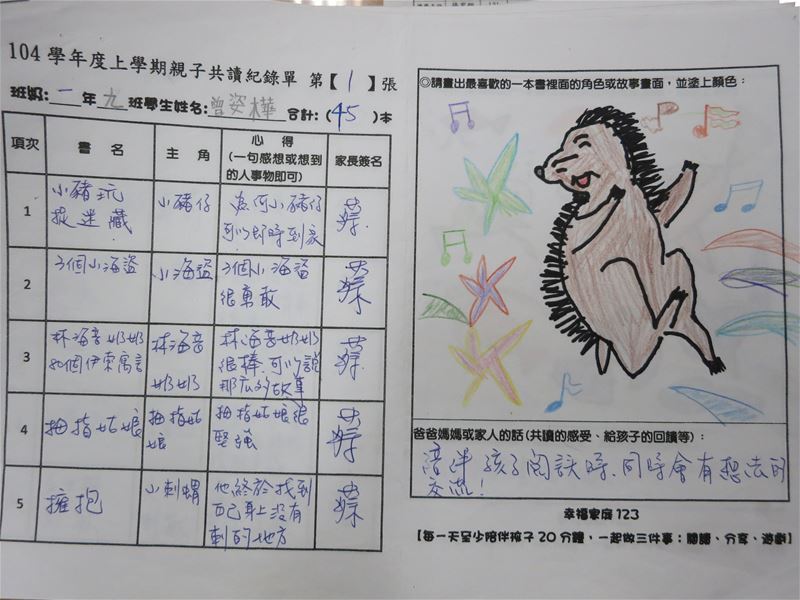 104 學年度上學期親子共讀紀錄單 第【 1 】張
班級: 一 年 九 班學生姓名: 曾姿樺 合計: ( 45 )本
項次 書 名 主 角 心 得 家長簽名
(一句感想或想到
的人事物即可)
1 小豬玩 小豬仔 為何小豬仔
捉迷藏 可以即時到家
2 3個小海盜 小海盜 3個小海盜
很勇敢
3 林海音奶奶 林海音 林海音奶奶
80個伊索寓言 奶奶 很棒.可以說
那広多故事
4 拇指姑娘 拇指姑 拇指姑娘很
娘 堅強
5 擁抱 小刺蝟 他終於找到
自己身上沒有
刺的地方
◎請畫出最喜歡的一本書裡面的角色或故事畫面，並塗上顏色：
爸爸媽媽或家人的話(共讀的感受、給孩子的回饋等)：
陪伴孩子閱讀時.同時會有想法的
交流!
幸福家庭 123
【每一天至少陪伴孩子 20 分鐘，一起做三件事：閱讀、分享、遊戲】